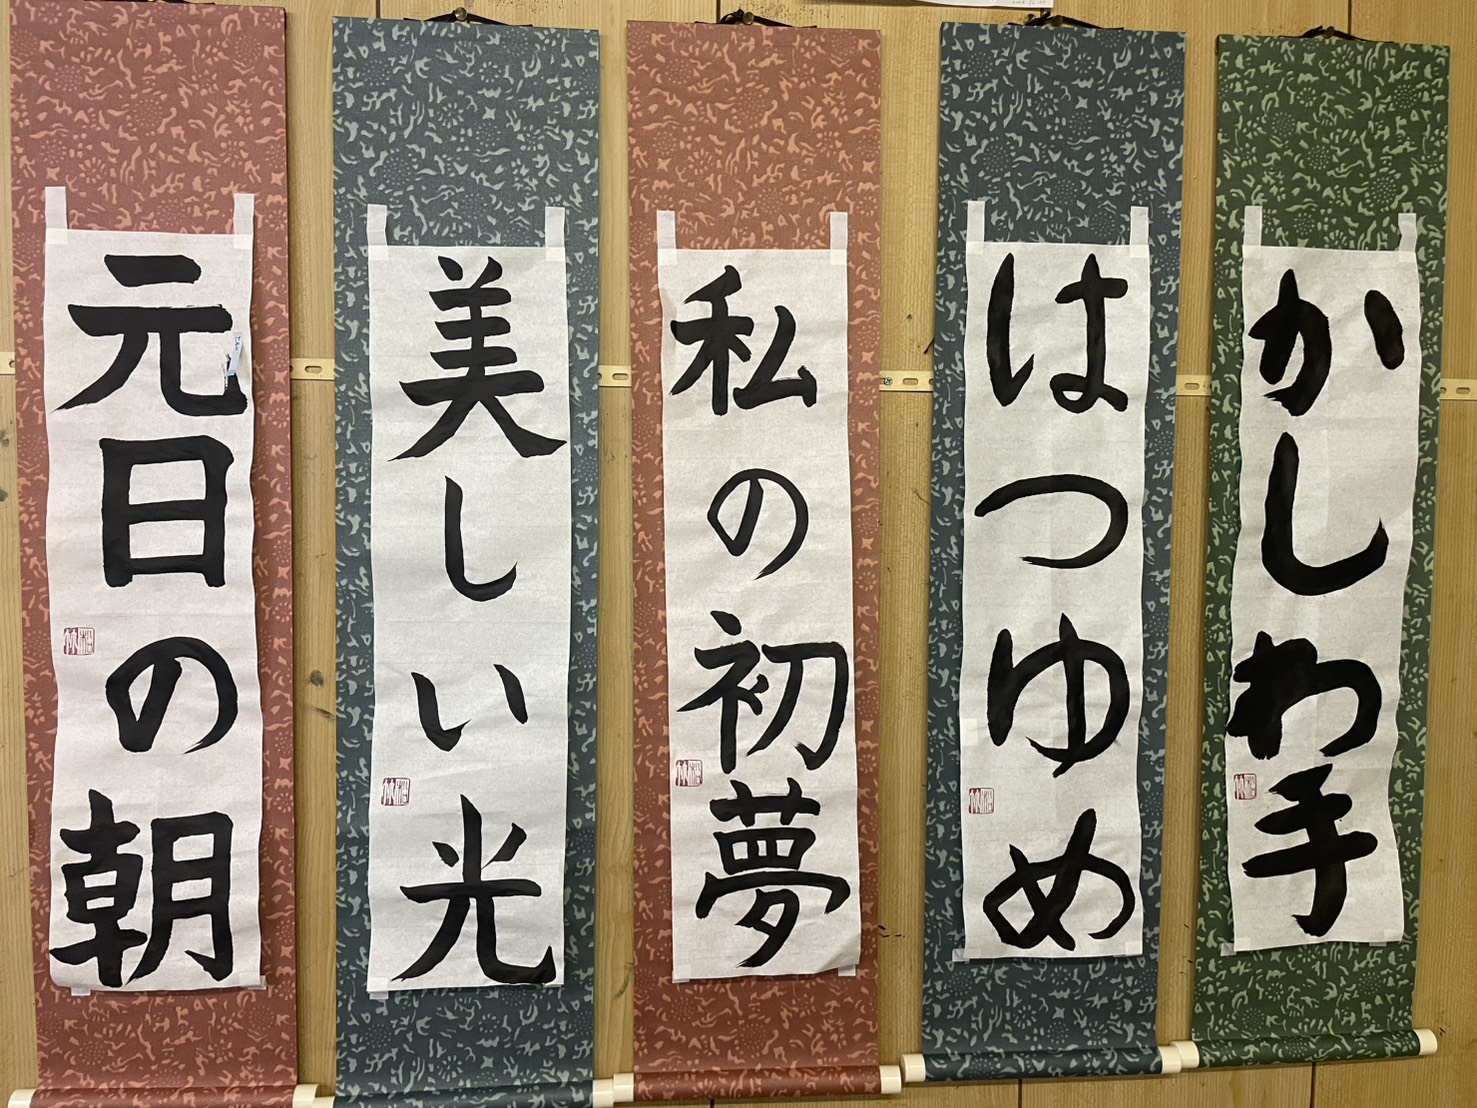 かしわ手
はつゆめ
私の初夢
美しい光
元日の朝